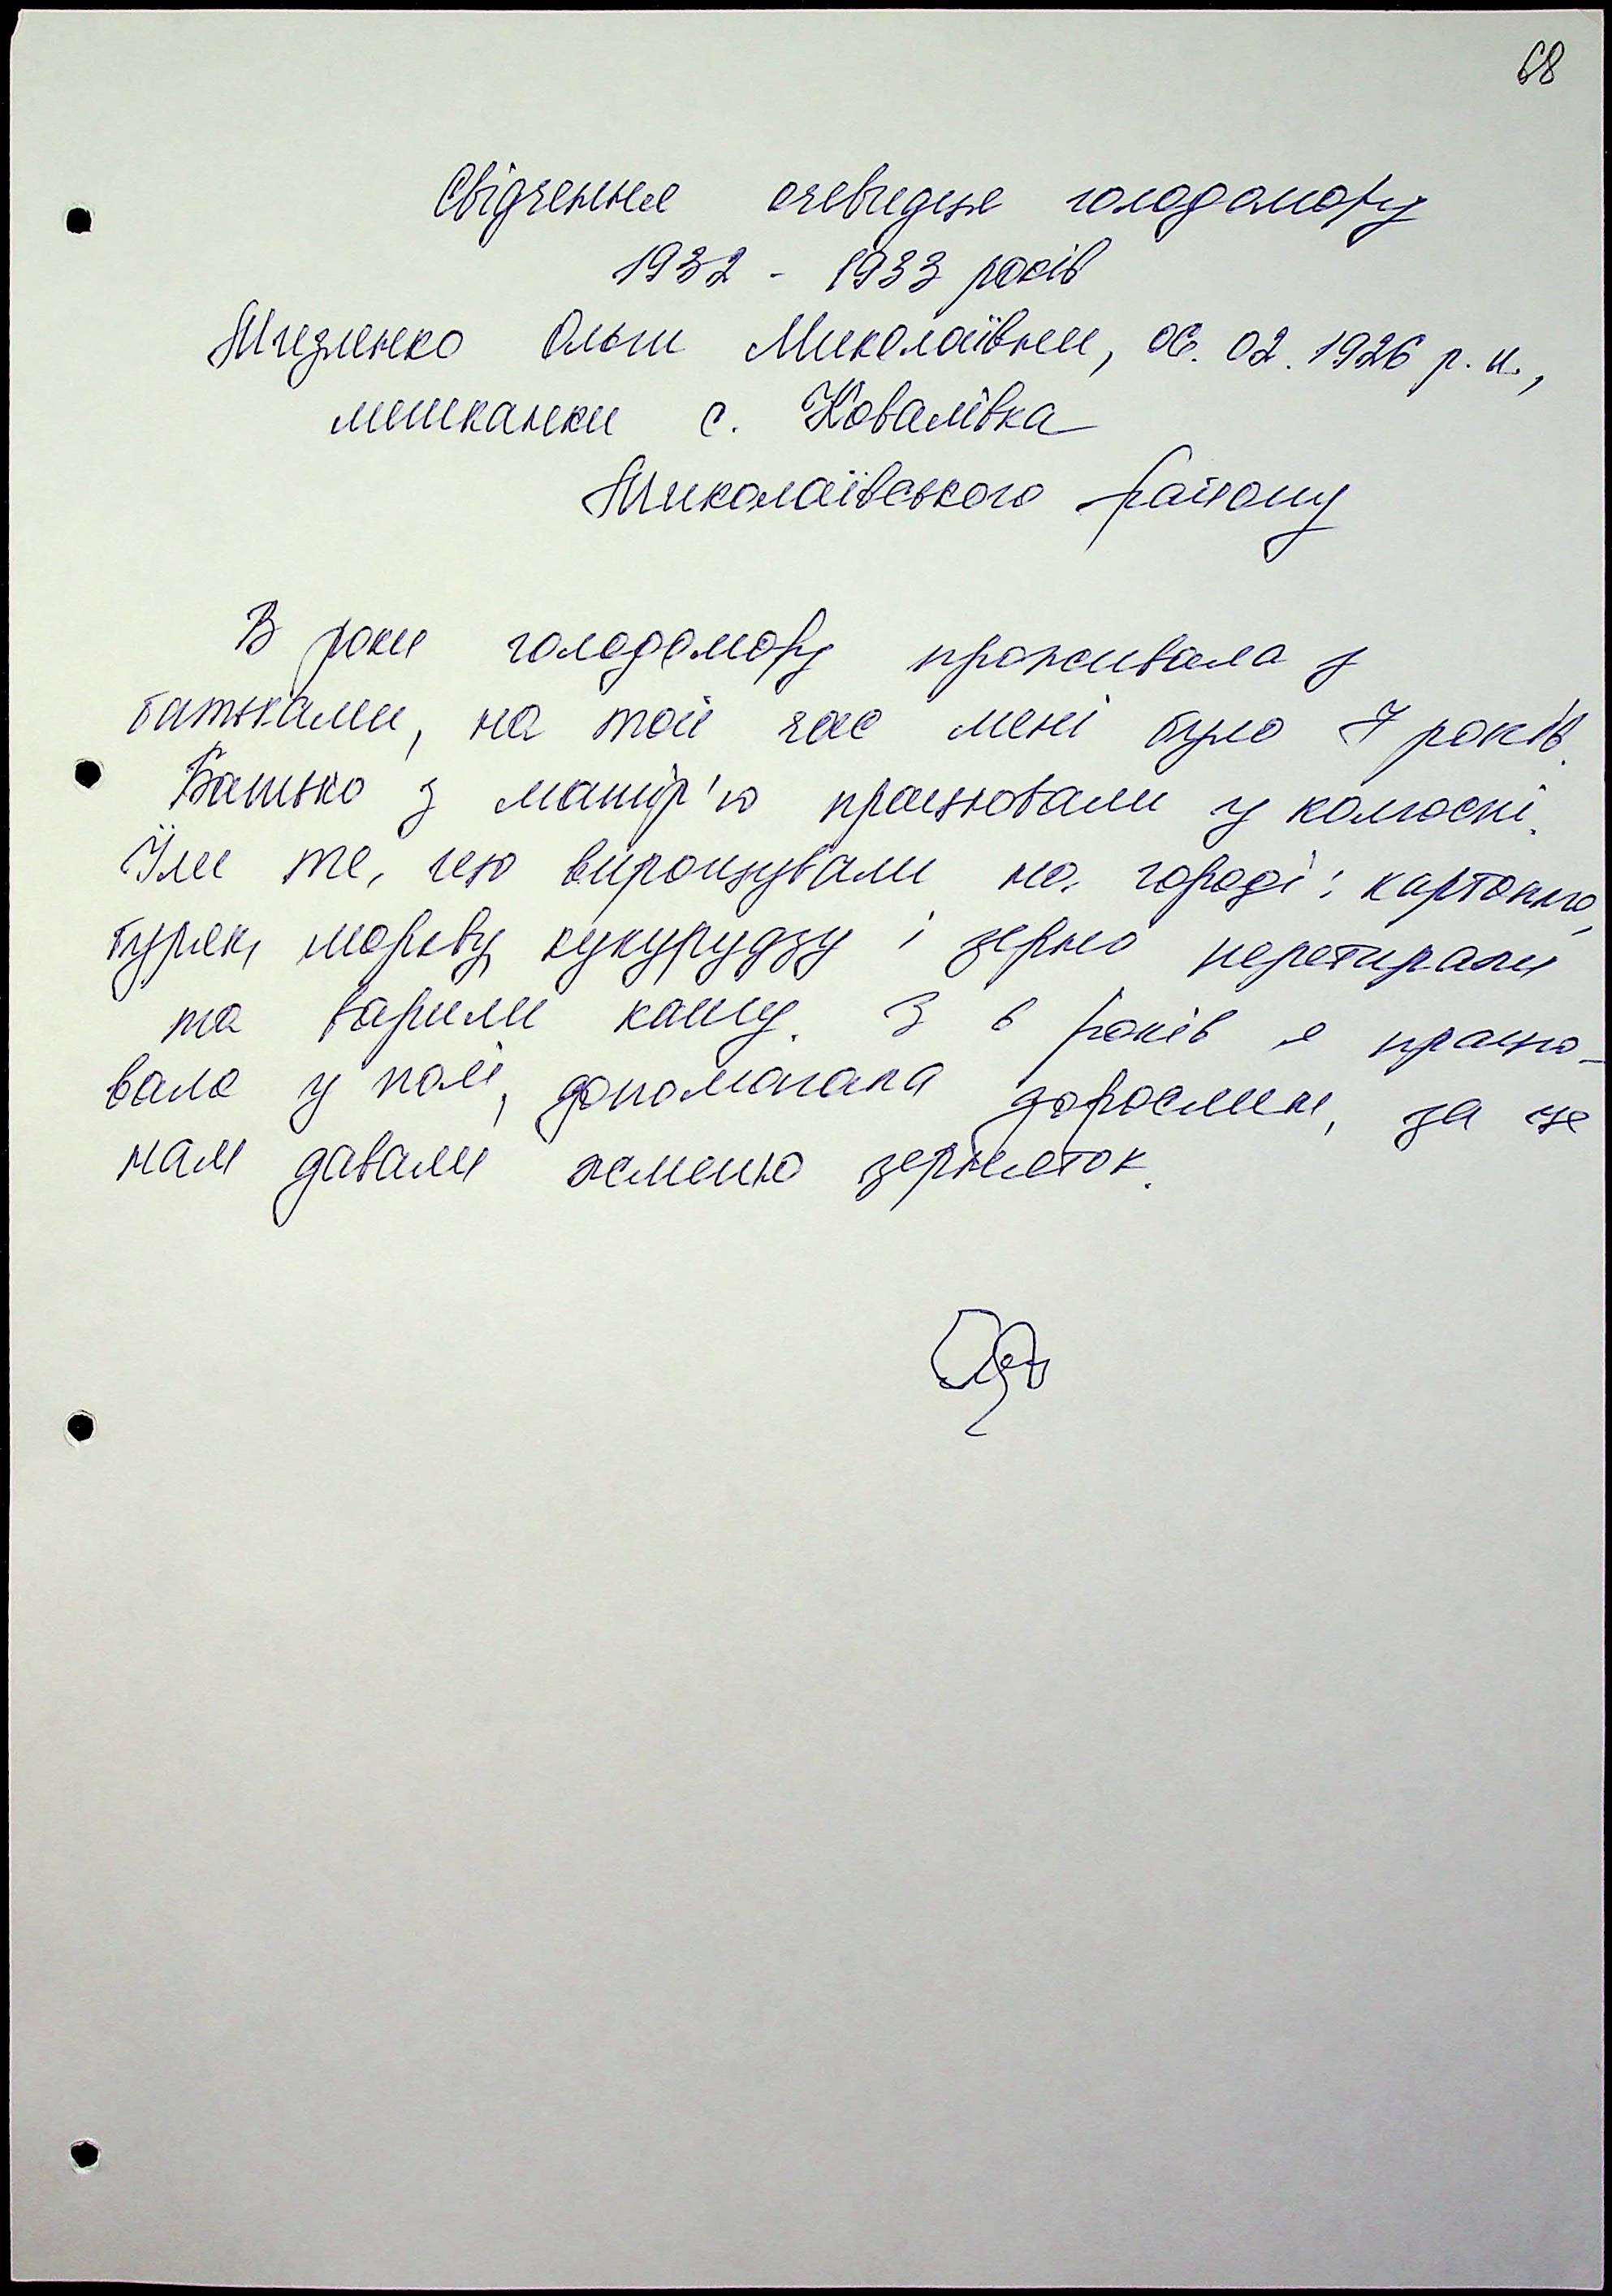 68
Свідчення очевидця голодомору
1932 - 1933 років
Ольги Миколаївни, 06. 02. 1926 р. н.,
мешканки с. Ковалівка
Миколаївського району
В роки голодомору проживала з
батьками, на той час мені було 7 років.
Батько з матір'ю працювали у колгоспі.
Їли те, що вирощували на городі: картоплю,
буряк, моркву, кукурудзу і зерно перетирали
та варили кашу. З 6 років я працю-
вала у полі, допомагала дорослим, за це
нам давали жменю зерняток.